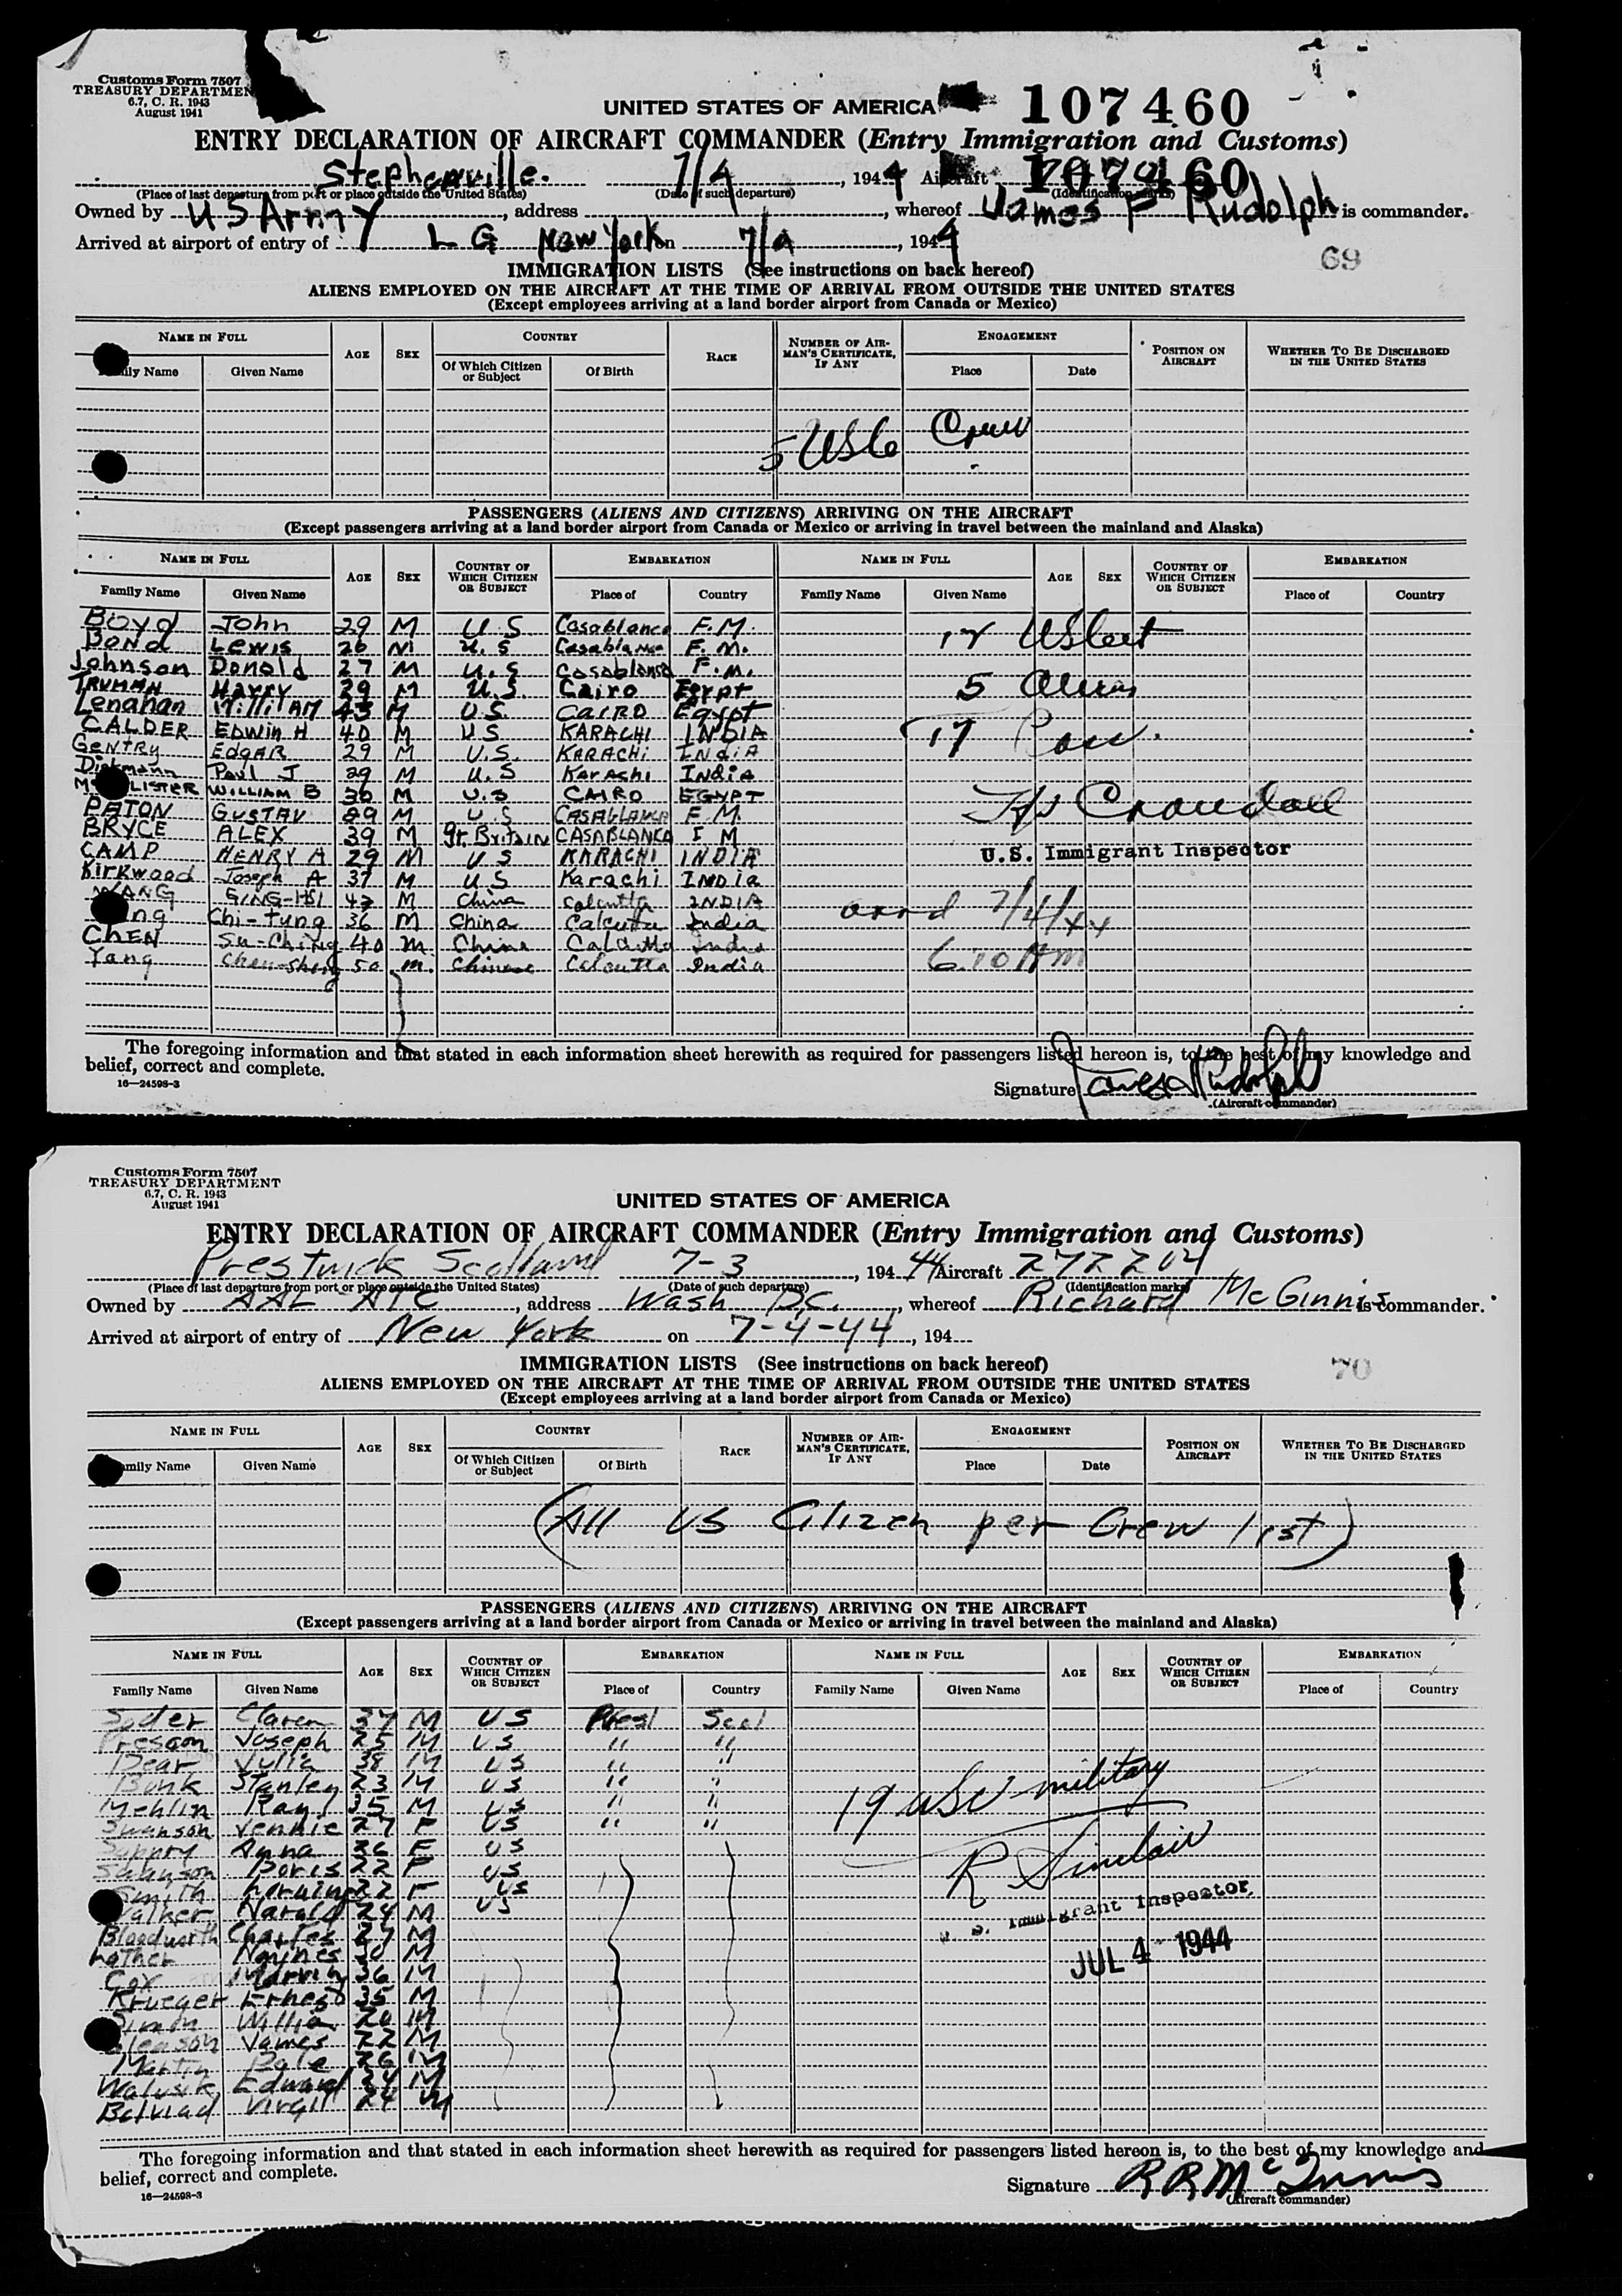 Customs Form 7507
TREASURY DEPARTMEN
6.7, C. R. 1943
August 1941
UNITED STATES OF AMERICA
107460
ENTRY DECLARATION OF AIRCRAFT COMMANDER (Entry Immigration and Customs)
107460
Stephenville. 7/4, 1944 Aircraft
(Place of last departure from port or place outside the United States) (Date of such departure) (Identification marks)
Owned by US Army, address, whereof James F Rudolph is commander.
Arrived at airport of entry of L G New York on 7/4, 1944
69
IMMIGRATION LISTS (See instructions on back hereof)
ALIENS EMPLOYED ON THE AIRCRAFT AT THE TIME OF ARRIVAL FROM OUTSIDE THE UNITED STATES
(Except employees arriving at a land border airport from Canada or Mexico)
NAME IN FULL AGE SEX COUNTRY RACE NUMBER OF AIRMAN'S CERTIFICATE, IF ANY ENGAGEMENT POSITION ON AIRCRAFT WHETHER TO BE DISCHARGED IN THE UNITED STATES
ily Name Given Name Of Which Citizen or Subject Of Birth Place Date
5 USC Crew
PASSENGERS (ALIENS AND CITIZENS) ARRIVING ON THE AIRCRAFT
(Except passengers arriving at a land border airport from Canada or Mexico or arriving in travel between the mainland and Alaska)
NAME IN FULL AGE SEX COUNTRY OF WHICH CITIZEN OR SUBJECT EMBARKATION NAME IN FULL AGE SEX COUNTRY OF WHICH CITIZEN OR SUBJECT EMBARKATION
Family Name Given Name Place of Country Family Name Given Name Place of Country
Boyd John 29 M U.S Casablanca F.M.
Bond Lewis 26 M U.S Casablanca F.M.
12
Johnson Donald 27 M U.S Casablanca F.M.
TRUMAN Harry 29 M U.S. Cairo Egypt
5 Aliens
Lenahan William 43 M U.S. CAIRO Egypt
CALDER EDWIN H 40 M US KARACHI INDIA
17 Pass.
GENTRY EDGAR 29 M U.S. KARACHI INDIA
Diekmann Paul J 29 M U.S Karachi India
M LISTER WILLIAM B 30 M U.S CAIRO EGYPT
PATON GUSTAV 29 M U S CASABLANCA F M.
Crandall
BRYCE ALEX 39 M Gt. Britain CASABLANCA F M
CAMP HENRY A 29 M U S KARACHI INDIA
U.S. Immigrant Inspector
Kirkwood Joseph A 37 M U S Karachi INDIA
WANG GING-HSI 47 M China Calcutta INDIA
ng Chi-tung 36 M China Calcutta India
arrd 7/4/44
CHEN Su-Ching 40 M China Calcutta India
Yang Chen-sheng 50 m. Chinese Calcutta India
6.10 AM
The foregoing information and that stated in each information sheet herewith as required for passengers listed hereon is, to the best of my knowledge and
belief, correct and complete.
16—24598-3
Signature James F Rudolph
(Aircraft commander)
Customs Form 7507
TREASURY DEPARTMENT
6.7, C. R. 1943
August 1941
UNITED STATES OF AMERICA
ENTRY DECLARATION OF AIRCRAFT COMMANDER (Entry Immigration and Customs)
Prestwick Scotland 7-3, 1944 Aircraft 272204
(Place of last departure from port or place outside the United States) (Date of such departure) (Identification marks)
Owned by AAL-ATC, address Wash D.C., whereof Richard McGinnis is commander.
Arrived at airport of entry of New York on 7-4-44, 194
70
IMMIGRATION LISTS (See instructions on back hereof)
ALIENS EMPLOYED ON THE AIRCRAFT AT THE TIME OF ARRIVAL FROM OUTSIDE THE UNITED STATES
(Except employees arriving at a land border airport from Canada or Mexico)
NAME IN FULL AGE SEX COUNTRY RACE NUMBER OF AIRMAN'S CERTIFICATE, IF ANY ENGAGEMENT POSITION ON AIRCRAFT WHETHER TO BE DISCHARGED IN THE UNITED STATES
mily Name Given Name Of Which Citizen or Subject Of Birth Place Date
(All US Citizen per Crew list)
PASSENGERS (ALIENS AND CITIZENS) ARRIVING ON THE AIRCRAFT
(Except passengers arriving at a land border airport from Canada or Mexico or arriving in travel between the mainland and Alaska)
NAME IN FULL AGE SEX COUNTRY OF WHICH CITIZEN OR SUBJECT EMBARKATION NAME IN FULL AGE SEX COUNTRY OF WHICH CITIZEN OR SUBJECT EMBARKATION
Family Name Given Name Place of Country Family Name Given Name Place of Country
Soder Claren 37 M US Prest Scot
Joseph 25 M US " "
Dear Julia 38 M US " "
Bonk Stanley 23 M US " "
Mehlin Ray 35 M US " "
19 USC military
Swanson Vennie 27 F US " "
Anna 26 F US
Swanson Doris 22 F US
R Sinclair
Smith 22 F US
alker Harold 24 M US
U. S. Immigrant Inspector
Bloodworth Charles 27 M
Lather Haynes 30 M
JUL 4 - 1944
Cox Marvin 36 M
Krueger Ernest 35 M
Simon Willia 20 M
leason James 22 M
Martin Dale 26 M
Walusik Edward 24 M
Virgil 24 M
The foregoing information and that stated in each information sheet herewith as required for passengers listed hereon is, to the best of my knowledge and
belief, correct and complete.
16—24598-3
Signature R R McGinnis
(Aircraft commander)